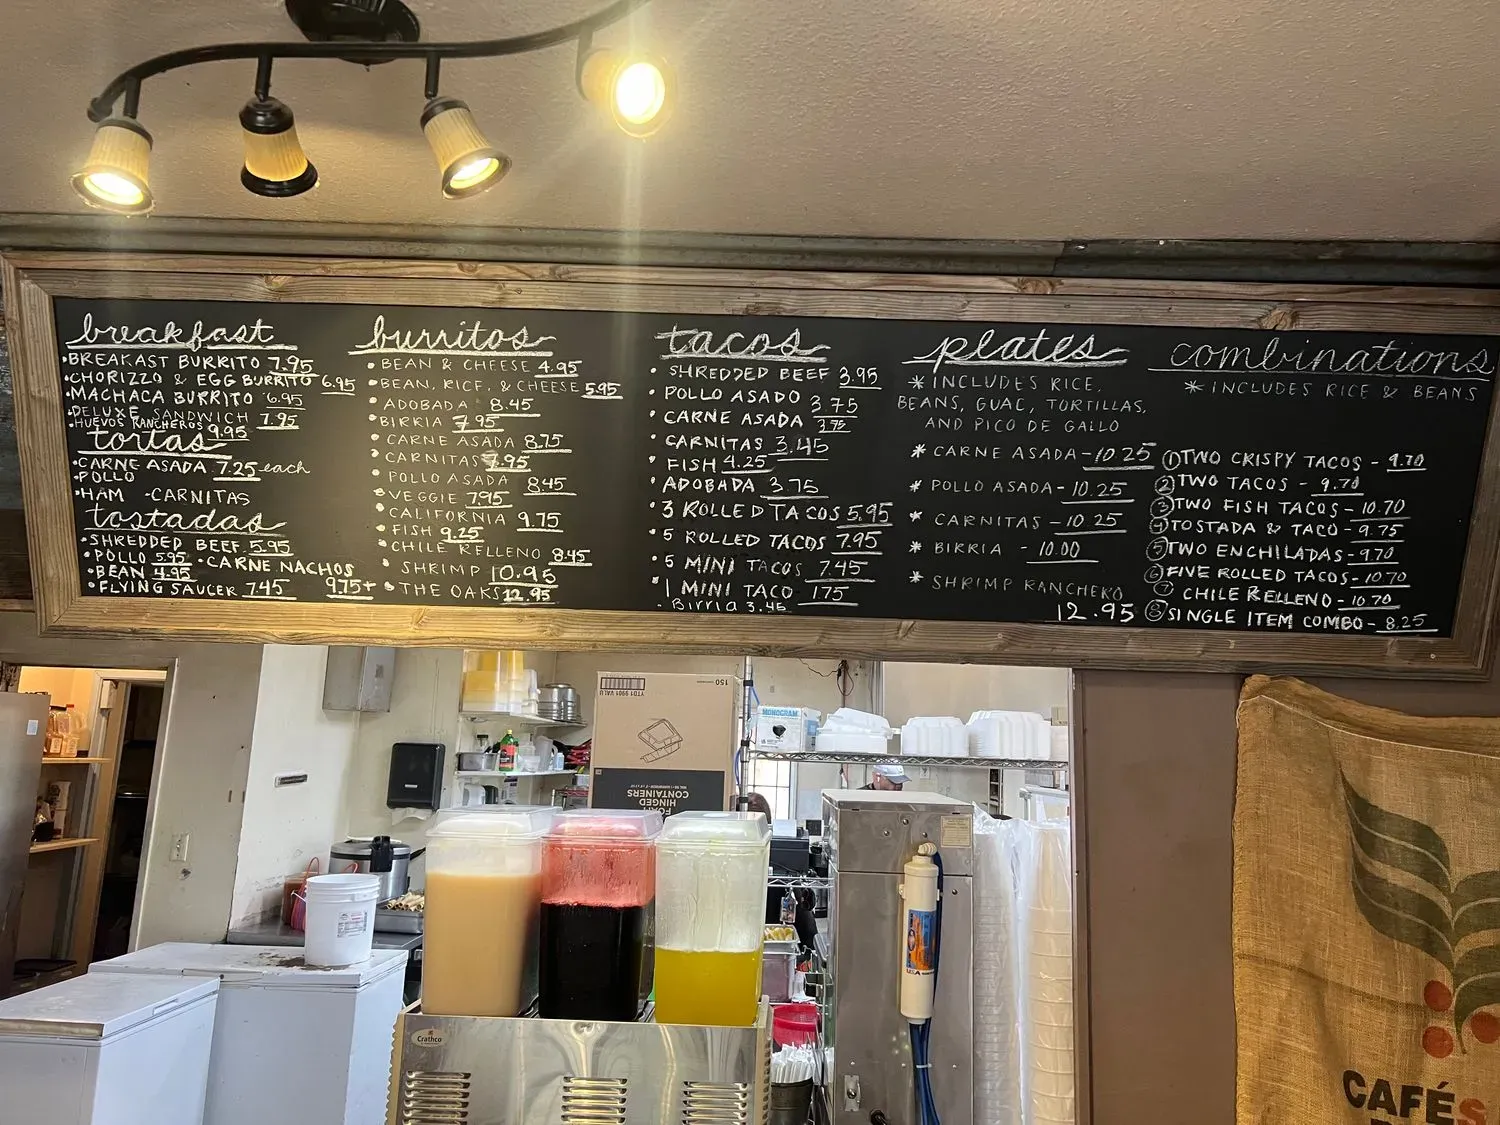 breakfast
•BREAKAST BURRITO 7.95
•CHORIZZO & EGG BURRITO 6.95
•MACHACA BURRITO 6.95
•DELUXE SANDWICH 7.95
•HUEVOS RANCHEROS 9.95
tortas
•CARNE ASADA 7.25 each
•POLLO
•HAM -CARNITAS
tostadas
•SHREDDED BEEF 5.95
•POLLO 5.95 •CARNE NACHOS
•BEAN 4.95
•FLYING SAUCER 7.45 9.75+
burritos
•BEAN & CHEESE 4.95
•BEAN, RICE, & CHEESE 5.95
•ADOBADA 8.45
•BIRRIA 7.95
•CARNE ASADA 8.75
•CARNITAS 7.95
•POLLO ASADA 8.45
•VEGGIE 7.95
•CALIFORNIA 9.75
•FISH 9.25
•CHILE RELLENO 8.45
•SHRIMP 10.95
•THE OAKS 12.95
tacos
•SHREDDED BEEF 3.95
•POLLO ASADO 3.75
•CARNE ASADA 3.75
•CARNITAS 3.45
•FISH 4.25
•ADOBADA 3.75
•3 ROLLED TACOS 5.95
•5 ROLLED TACOS 7.95
•5 MINI TACOS 7.45
•1 MINI TACO 1.75
-Birria 3.45
plates
*INCLUDES RICE,
BEANS, GUAC, TORTILLAS,
AND PICO DE GALLO
*CARNE ASADA-10.25
*POLLO ASADA-10.25
*CARNITAS-10.25
*BIRRIA -10.00
*SHRIMP RANCHERO
12.95
combinations
*INCLUDES RICE & BEANS
①TWO CRISPY TACOS - 9.70
②TWO TACOS - 9.70
③TWO FISH TACOS-10.70
④TOSTADA & TACO-9.75
⑤TWO ENCHILADAS-9.70
⑥FIVE ROLLED TACOS-10.70
⑦CHILE RELLENO-10.70
⑧SINGLE ITEM COMBO-8.25
150
YTD1 9901 VALU
FOAM
HINGED
CONTAINERS
MONOGRAM
Crathco
USA
CAFÉS